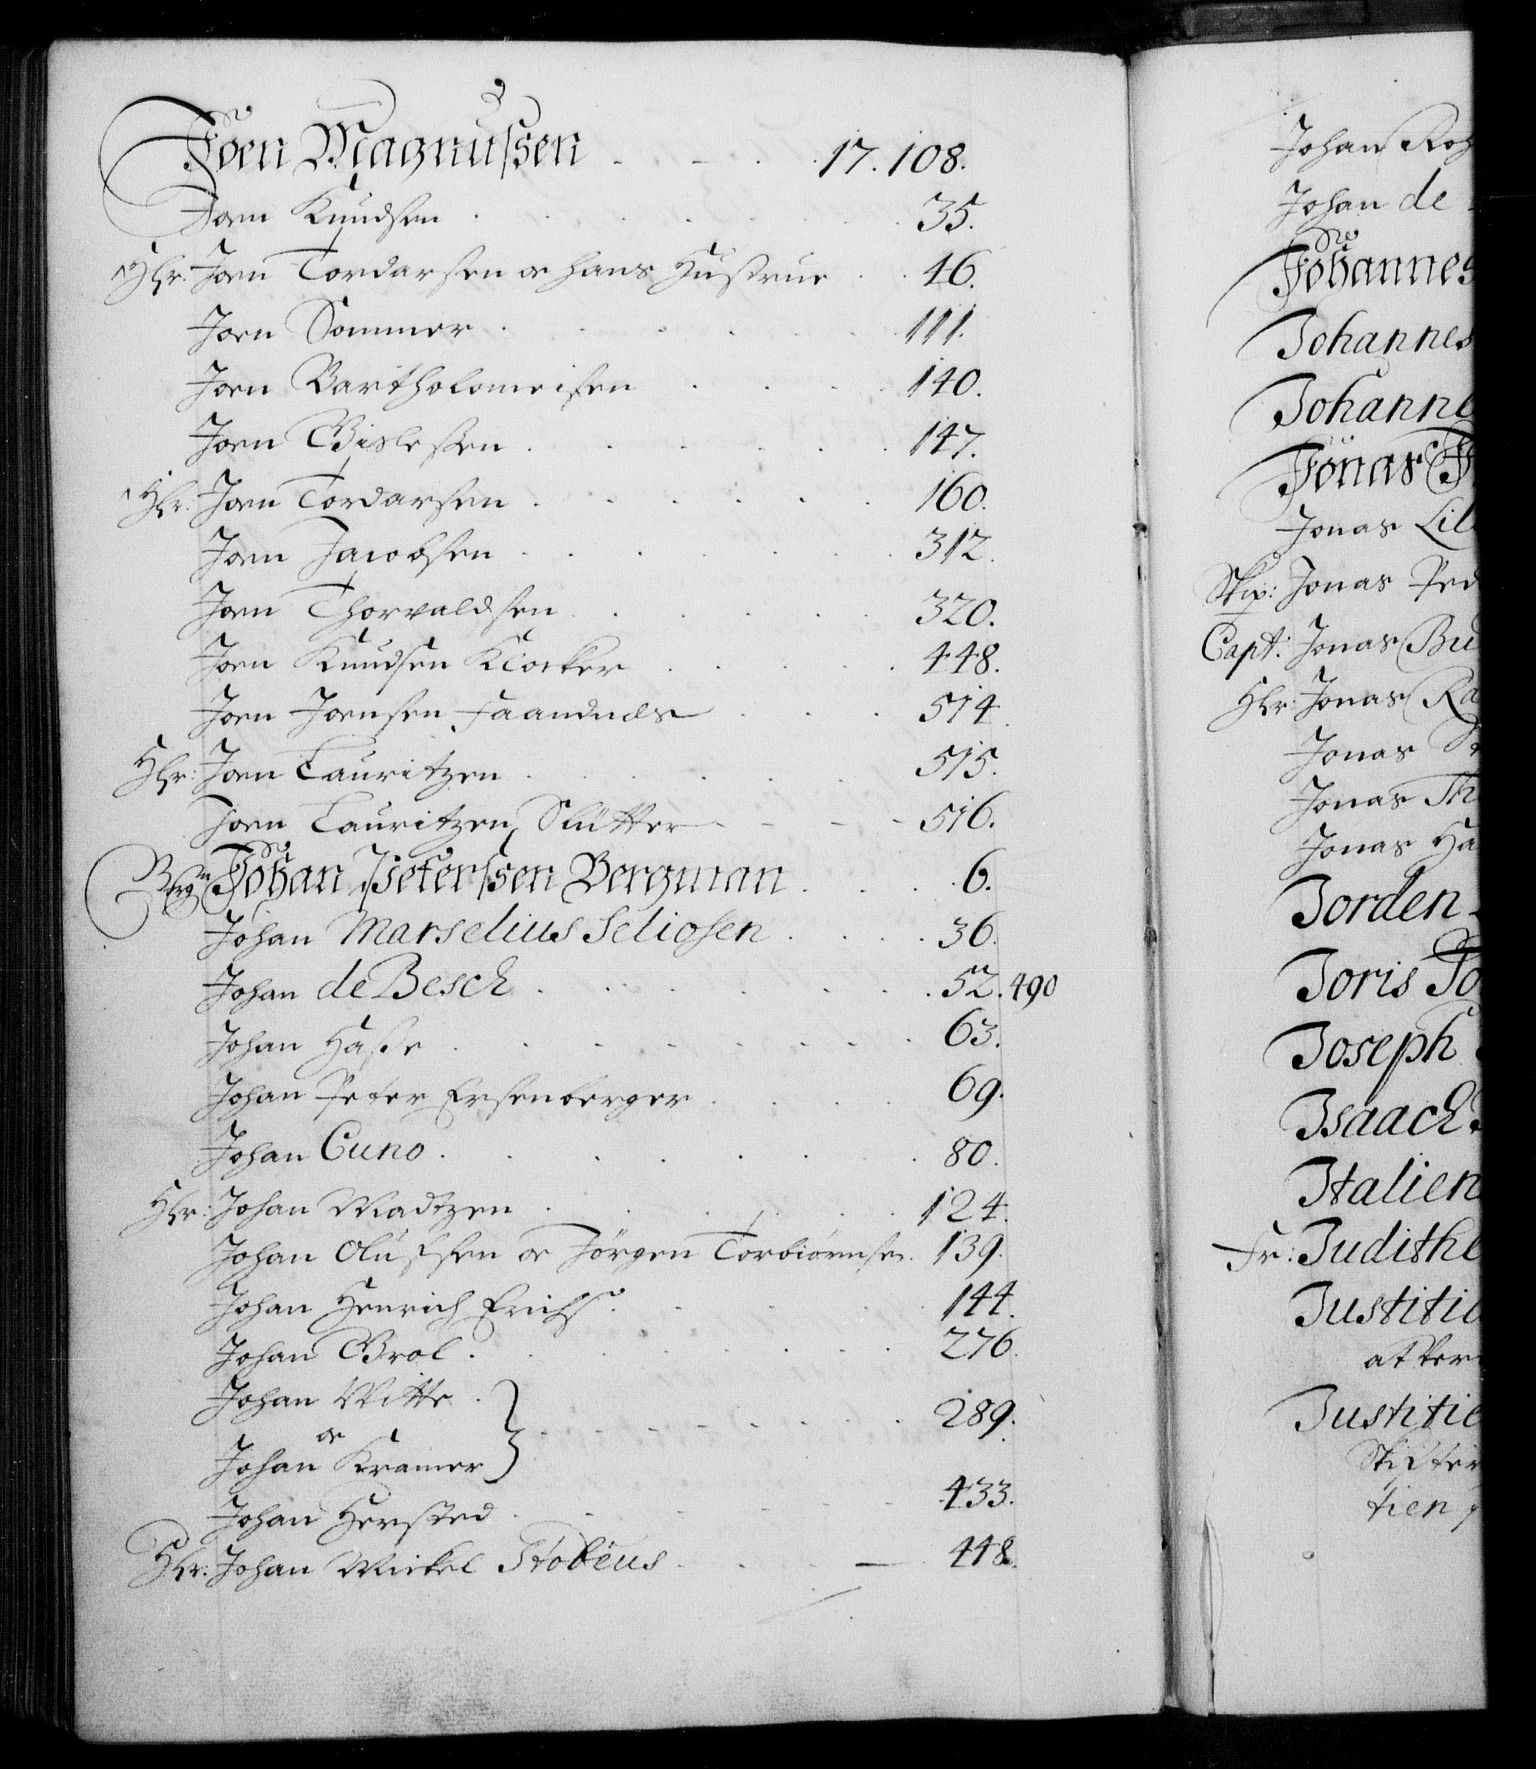 Joen Magnussen 17. 108.
Joen Knudsen 35.
Hlr: Joen Tordarsen oc hans Hustrue 46.
Joen Sommer 111.
Joen Bartholomeisen 140.
Joen Gislessen 147.
Hlr: Joen Tordarsen 160.
Joen Jacobsen 312.
Joen Thorvaldsen 320.
Joen Knudsen Klocker 448.
Joen Joensen 514
Hlr: Joen Lauritzen 515.
Joen Lauritzen Slütter 516.
Johan Peterssen Bergman 6.
Johan Marselius Seliosen 36.
Johan de Besch 52. 490
Johan Hasse 63.
Johan Peter Ersenberger 69.
Johan Cuno 80.
Hlr: Johan Madtzen 124.
Johan Olufsen oc Jörgen Torbiörnsen 139.
Johan Henrich Erichs 144.
Johan Grol 276.
Johan Witte
oc 289.
Johan Kramer
Johan Hersted 433.
Hlr: Johan Mickel Stobèus 448.
Johan Roh
Johan de
Johannes
Johannes
Johanne
Jonas
Jonas Lil
Skip: Jonas Ped
Capt: Jonas Bu
Hlr: Jonas Ra
Jonas
Jonas Th
Jonas Ha
Jorden
Joris
Joseph
Isaach
Italien
Fr: Judithe
Justitie
at
Justitie
tien